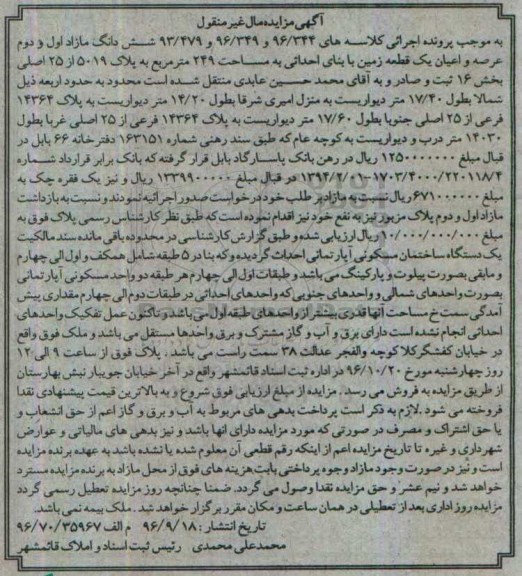 آگهی مزایده مال غیر منقول
به موجب پرونده اجرائی کلاسه های ۹۶/۳۴۴ و ۹۶/۳۴۹ و ۹۳/۴۷۹ شش دانگ مازاد اول و دوم
عرصه و اعیان یک قطعه زمین با بنای احداثی به مساحت ۲۴۹ مترمربع به پلاک ۵۰۱۹ از ۲۵ اصلی
بخش ۱۶ ثبت و صادر و به آقای محمد حسین عابدی منتقل شده است محدود به حدود اربعه ذیل
شمالا بطول ۱۷/۴۰ متر دیواریست به منزل امیری شرقا بطول ۱۴/۲۰ متر دیواریست به پلاک ۱۴۳۶۴
فرعی از ۲۵ اصلی جنوبا بطول ۱۷/۶۰ متر دیواریست به پلاک ۱۴۳۶۴ فرعی از ۲۵ اصلی غربا بطول
۱۴۰۳۰ متر درب و دیواریست به کوچه عام که طبق سند رهنی شماره ۱۶۳۱۵۱ دفترخانه ۶۶ بابل در
قبال مبلغ ۱۲۵۰۰۰۰۰۰۰ ریال در رهن بانک پاسارگاد بابل قرار گرفته که بانک برابر قرارداد شماره
۱۷۰۳/۴۰۰۰/۲۲۰۱۱۸/۴-۱۳۹۴/۲/۰۱ در قبال مبلغ ۱۳۳۹۹۰۰۰۰۰ ریال و نیز یک فقره چک به
مبلغ ۶۷۱۰۰۰۰۰۰ ریال نسبت به مازاد بر طلب خود درخواست صدور اجرائیه نمودند و نسبت به بازداشت
مازاد اول و دوم پلاک مزبور نیز به نفع خود نیز اقدام نموده است که طبق نظر کارشناس رسمی پلاک فوق به
مبلغ ۱۰/۰۰۰/۰۰۰/۰۰۰ ریال ارزیابی شده و طبق گزارش کارشناسی در محدوده باقی مانده سند مالکیت
یک دستگاه ساختمان مسکونی آپارتمانی احداث گردیده و که بنا در ۵ طبقه شامل همکف و اول الی چهارم
و مابقی بصورت پیلوت و پارکینگ می باشد و طبقات اول الی چهارم هر طبقه دو واحد مسکونی آپارتمانی
بصورت واحدهای شمالی و واحدهای جنوبی که واحدهای احداثی در طبقات دوم الی چهارم مقداری پیش
آمدگی سمت خ مساحت آنها قدری بیشتر از واحدهای طبقه اول می باشد و تاکنون عمل تفکیک واحدهای
احداثی انجام نشده است دارای برق و آب و گاز مشترک و برق واحدها مستقل می باشد و ملک فوق واقع
در خیابان کفشگرکلا کوچه والفجر عدالت ۳۸ سمت راست می باشد ، پلاک فوق از ساعت ۹ الی ۱۲
روز چهارشنبه مورخ ۹۶/۱۰/۲۰ در اداره ثبت اسناد قائمشهر واقع در آخر خیابان جویبار نبش بهارستان
از طریق مزایده به فروش می رسد . مزایده از مبلغ ارزیابی فوق شروع و به بالاترین قیمت پیشنهادی نقدا
فروخته می شود . لازم به ذکر است پرداخت بدهی های مربوط به آب و برق و گاز اعم از حق انشعاب و
یا حق اشتراک و مصرف در صورتی که مورد مزایده دارای آنها باشد و نیز بدهی های مالیاتی و عوارض
شهرداری و غیره تا تاریخ مزایده اعم از اینکه رقم قطعی آن معلوم شده یا نشده باشد به عهده برنده مزایده
است و نیز در صورت وجود مازاد وجوه پرداختی بابت هزینه های فوق از محل مازاد به برنده مزایده مسترد
خواهد شد و نیم عشر و حق مزایده نقدا وصول می گردد. ضمنا چنانچه روز مزایده تعطیل رسمی گردد
مزایده روز اداری بعد از تعطیلی در همان ساعت و مکان مقرر برگزار خواهد شد . ملک بیمه نمی باشد.
تاریخ انتشار : ۹۶/۹/۱۸ م الف ۹۶/۷۰/۳۵۹۶۷
محمدعلی محمدی رئیس ثبت اسناد و املاک قائمشهر